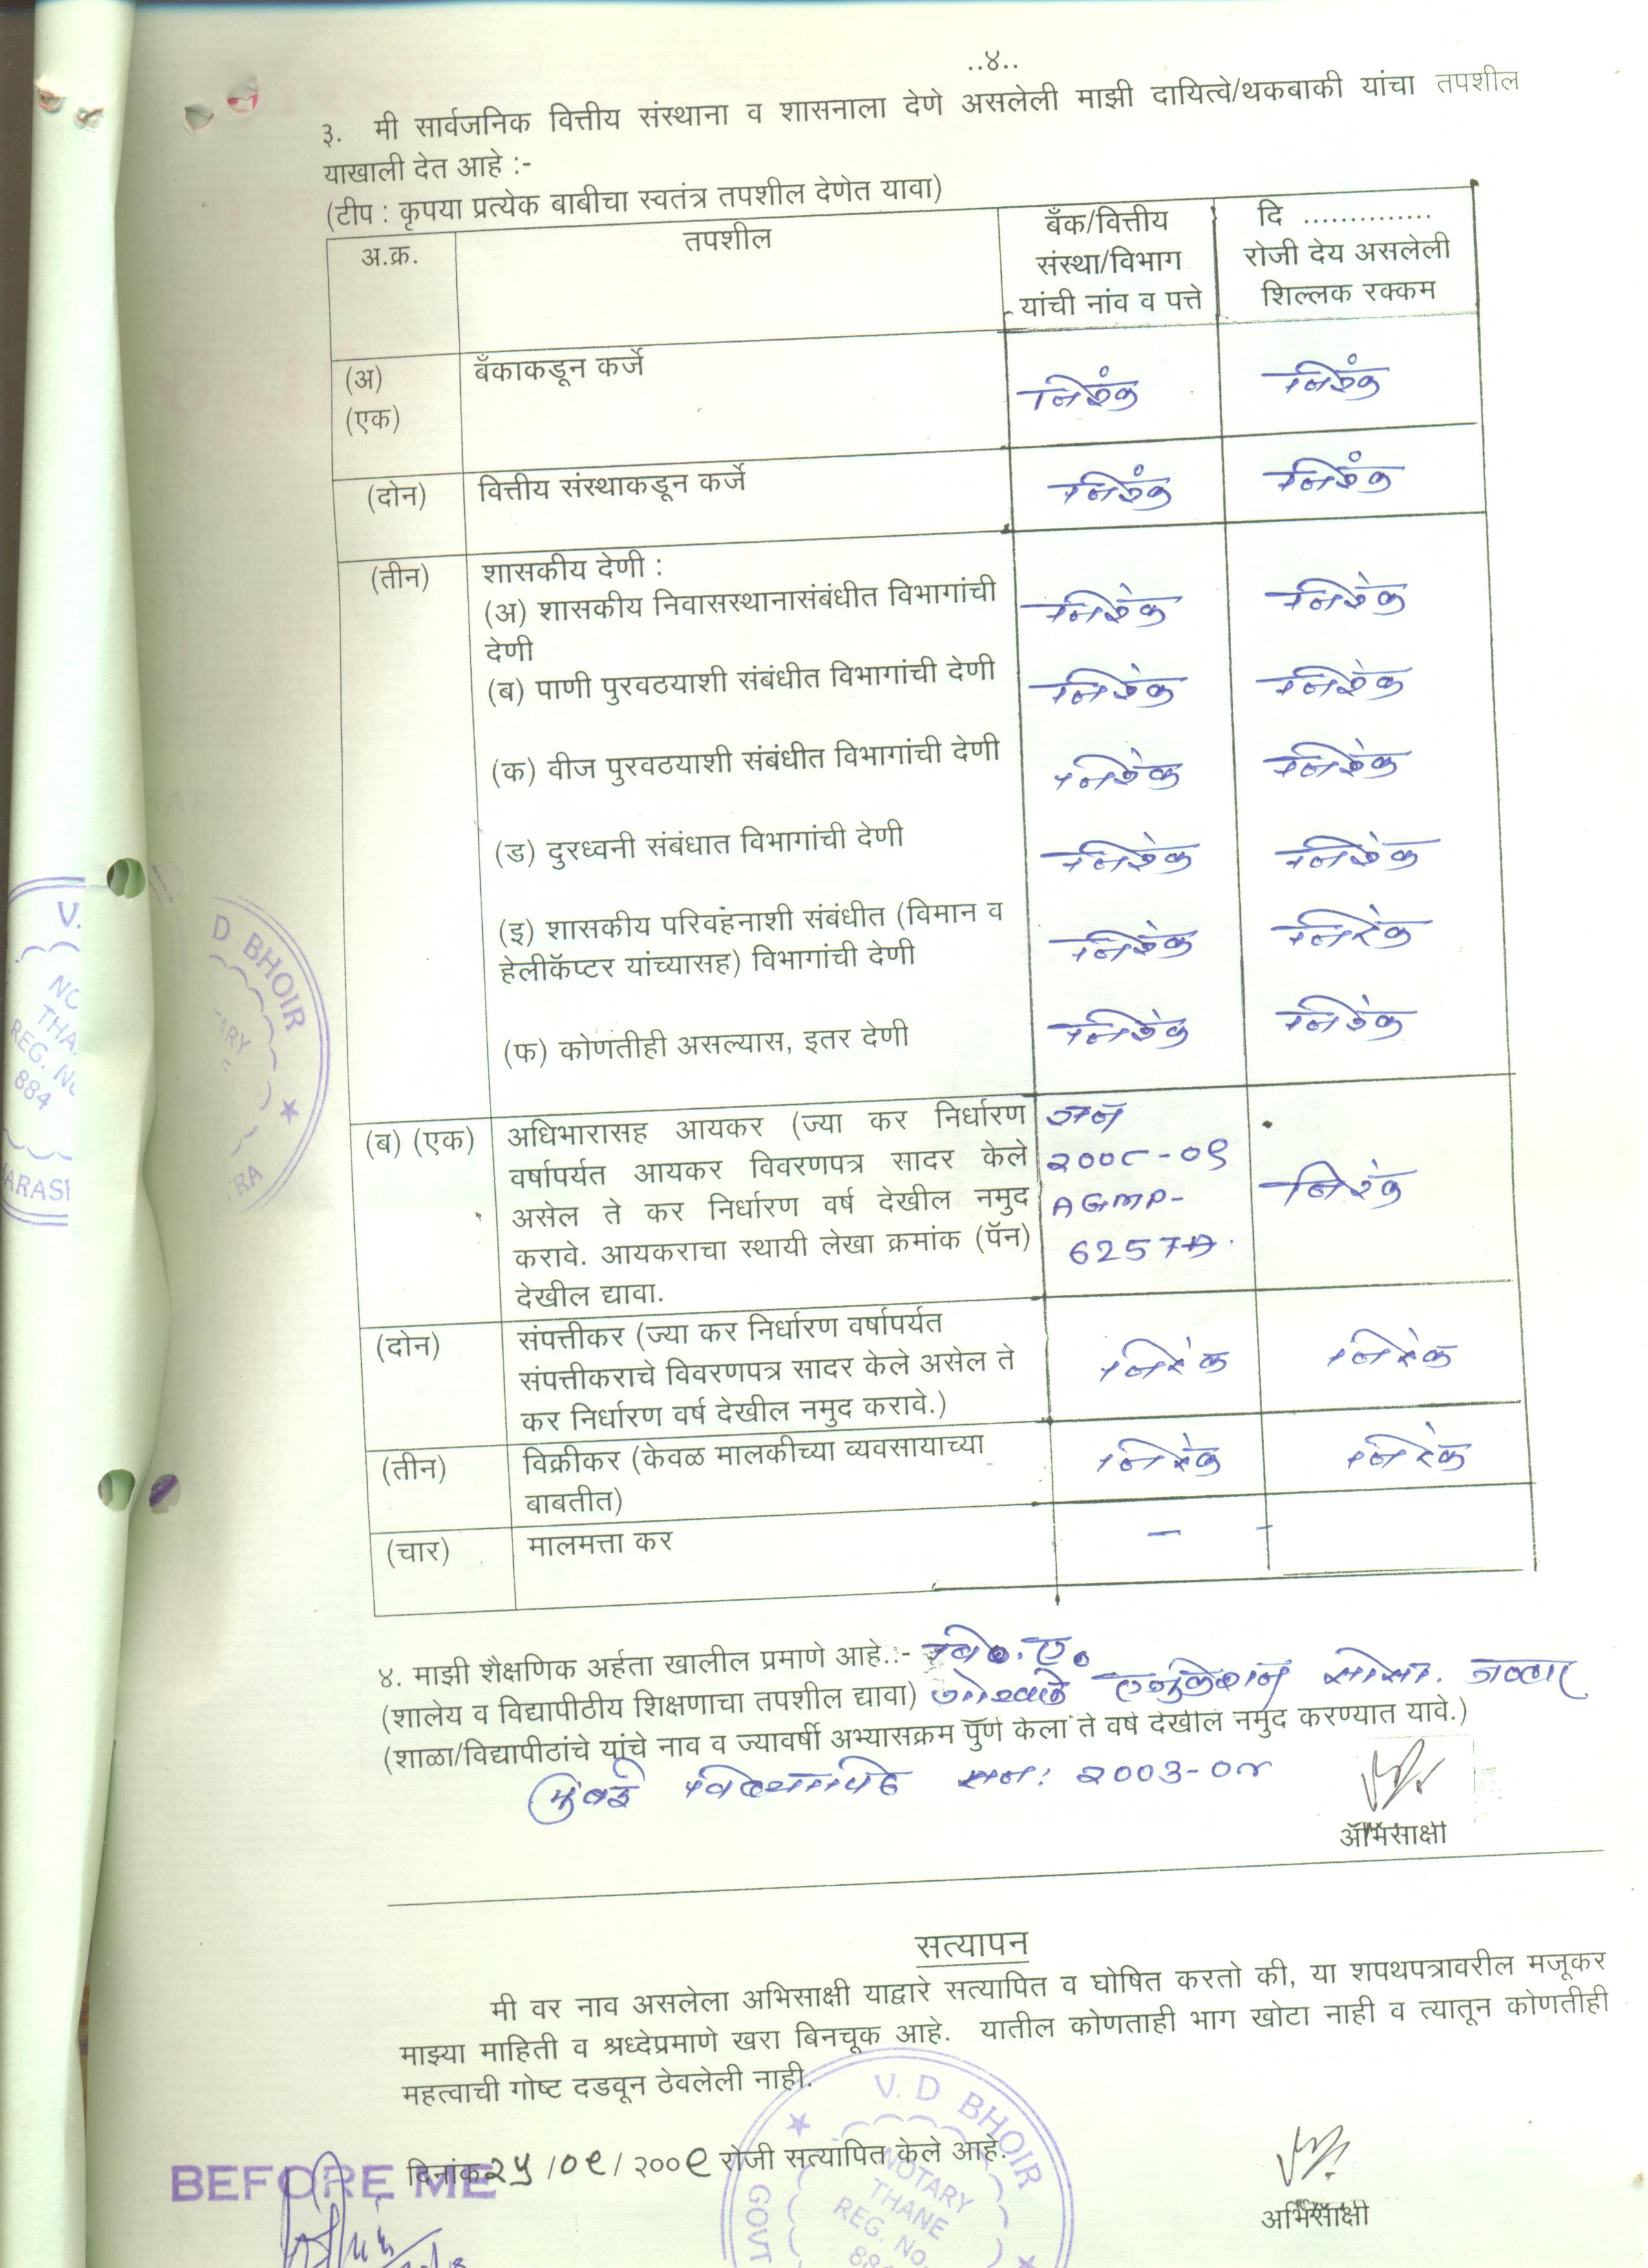 ..४..
३. मी सार्वजनिक वित्तीय संस्थाना व शासनाला देणे असलेली माझी दायित्वे/थकबाकी यांचा तपशील
याखाली देत आहे :-
(टीप : कृपया प्रत्येक बाबीचा स्वतंत्र तपशील देणेत यावा)
अ.क्र.
तपशील
बँक/वित्तीय
संस्था/विभाग
यांची नांव व पत्ते
दि ..............
रोजी देय असलेली
शिल्लक रक्कम
(अ)
(एक)
बँकाकडून कर्जे
निरंक
निरंक
(दोन)
वित्तीय संस्थाकडून कर्जे
निरंक
निरंक
(तीन)
शासकीय देणी :
(अ) शासकीय निवासस्थानासंबंधीत विभागांची
देणी
निरंक
निरंक
(ब) पाणी पुरवठयाशी संबंधीत विभागांची देणी
निरंक
निरंक
(क) वीज पुरवठयाशी संबंधीत विभागांची देणी
निरंक
निरंक
(ड) दुरध्वनी संबंधात विभागांची देणी
निरंक
निरंक
(इ) शासकीय परिवहंनाशी संबंधीत (विमान व
हेलीकॅप्टर यांच्यासह) विभागांची देणी
निरंक
निरंक
(फ) कोणतीही असल्यास, इतर देणी
निरंक
निरंक
(ब) (एक)
अधिभारासह आयकर (ज्या कर निर्धारण
वर्षापर्यत आयकर विवरणपत्र सादर केले
असेल ते कर निर्धारण वर्ष देखील नमुद
करावे. आयकराचा स्थायी लेखा क्रमांक (पॅन)
देखील द्यावा.
सन
२००८-०९
AGMP-
6257
निरंक
(दोन)
संपत्तीकर (ज्या कर निर्धारण वर्षापर्यत
संपत्तीकराचे विवरणपत्र सादर केले असेल ते
कर निर्धारण वर्ष देखील नमुद करावे.)
निरंक
निरंक
(तीन)
विक्रीकर (केवळ मालकीच्या व्यवसायाच्या
बाबतीत)
निरंक
निरंक
(चार)
मालमत्ता कर
–
-
४. माझी शैक्षणिक अर्हता खालील प्रमाणे आहे.:- बि.ए.
(शालेय व विद्यापीठीय शिक्षणाचा तपशील द्यावा) गोखले एज्युकेशन सोसा. जव्हार
(शाळा/विद्यापीठांचे यांचे नाव व ज्यावर्षी अभ्यासक्रम पुर्ण केला ते वर्ष देखील नमुद करण्यात यावे.)
मुंबई विद्यापीठ सन: २००३-०४
अभिसाक्षी
सत्यापन
मी वर नाव असलेला अभिसाक्षी याद्वारे सत्यापित व घोषित करतो की, या शपथपत्रावरील मजूकर
माझ्या माहिती व श्रध्देप्रमाणे खरा बिनचूक आहे. यातील कोणताही भाग खोटा नाही व त्यातून कोणतीही
महत्वाची गोष्ट दडवून ठेवलेली नाही.
दिनांक २५/०९/२००९ रोजी सत्यापित केले आहे.
BEFORE ME
अभिसाक्षी
V. D BHOIR
NOTARY
THANE
REG. No.
GOVT
D BHOIR
V.
REG. No
884